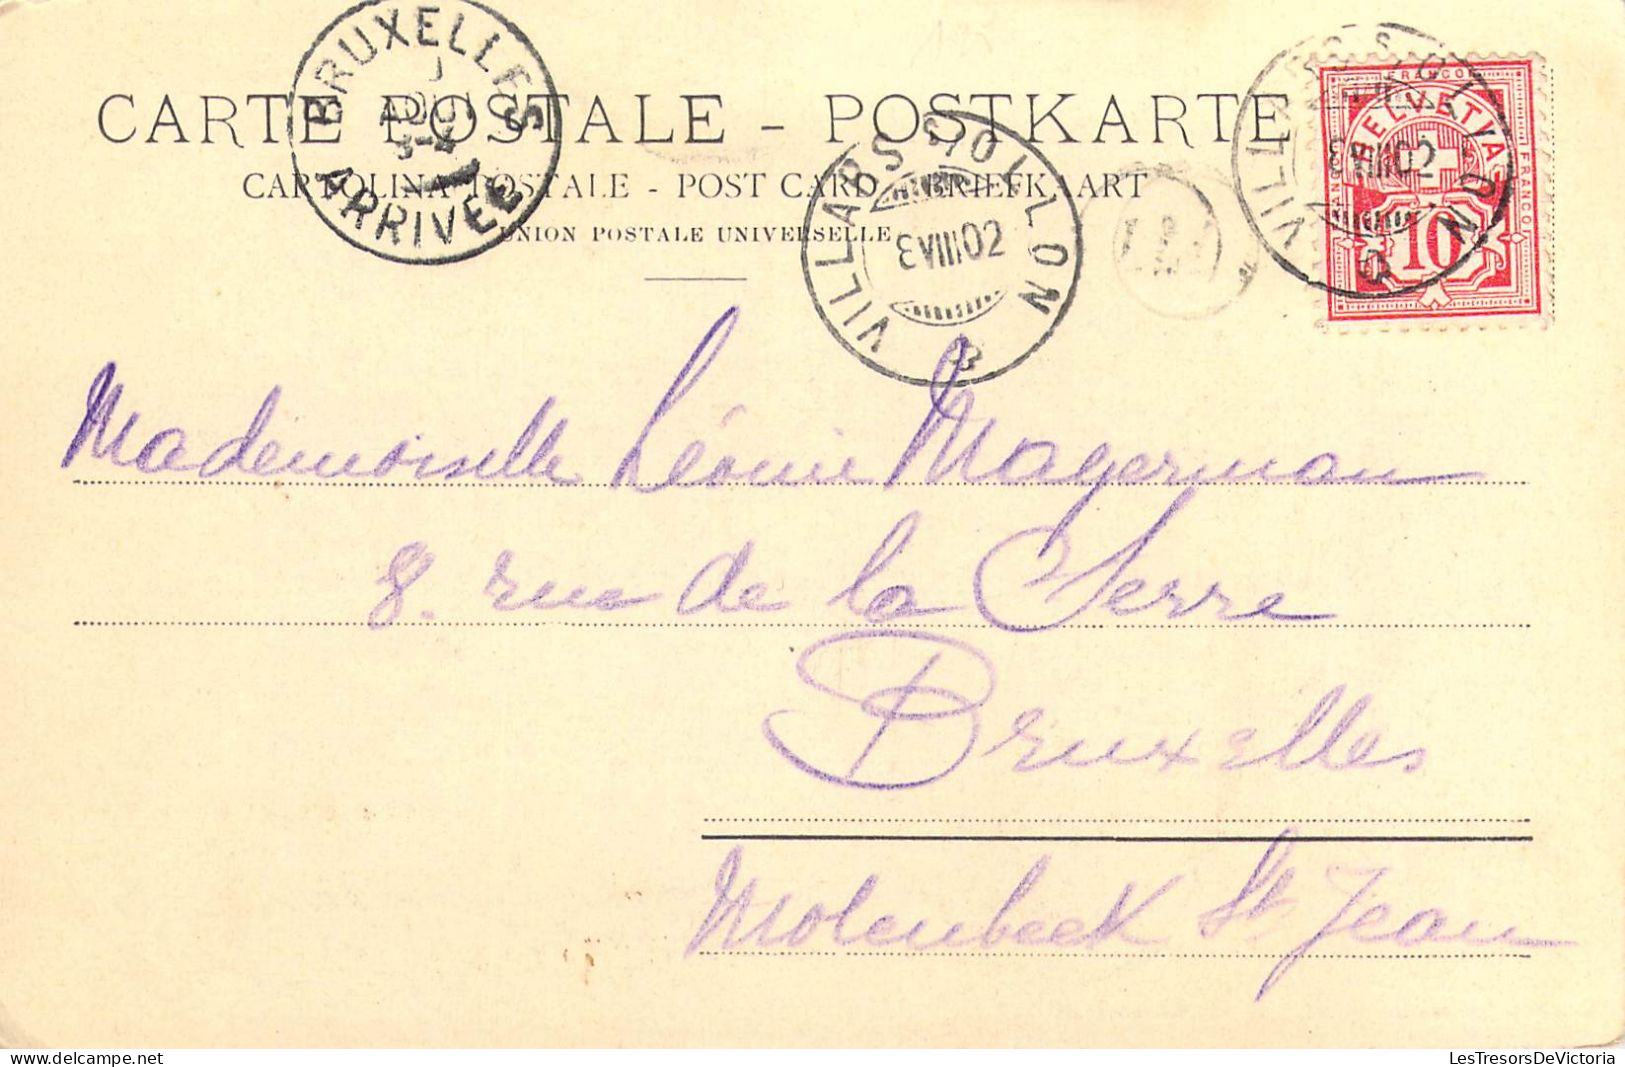 BRUXELLES
ARRIVÉE
CARTE POSTALE - POSTKARTE
CARTOLINA POSTALE - POST CARD - BRIEFKAART
UNION POSTALE UNIVERSELLE
VILLARS S/OLLON
3 VIII 02
VILLARS S/OLLON
3 VIII 02
FRANCO
HELVETIA
FRANCO
10
Mademoiselle Léonie Magerman
8. rue de la Serre
Bruxelles
Molenbeek St Jean
LesTresorsDeVictoria